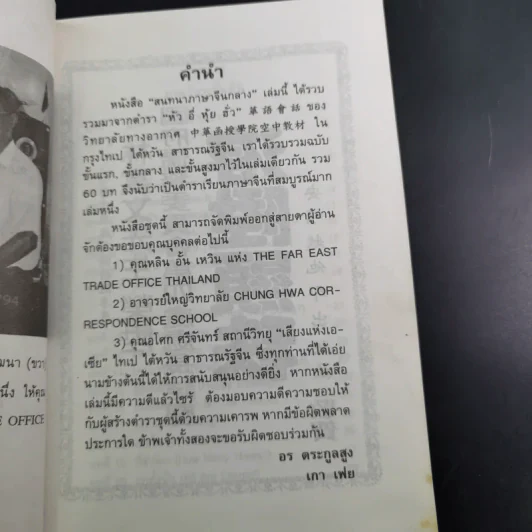 คำนำ
หนังสือ “สนทนาภาษาจีนกลาง” เล่มนี้ ได้รวบ
รวมมาจากตำรา “หัว อี่ หุ้ย ฮั่ว” 華語會話 ของ
วิทยาลัยทางอากาศ 中華函授學院空中教材 ใน
กรุงไทเป ไต้หวัน สาธารณรัฐจีน เราได้รวบรวมฉบับ
ชั้นแรก, ชั้นกลาง และชั้นสูงมาไว้ในเล่มเดียวกัน รวม
60 บท จึงนับว่าเป็นตำราเรียนภาษาจีนที่สมบูรณ์มาก
เล่มหนึ่ง
หนังสือชุดนี้ สามารถจัดพิมพ์ออกสู่สายตาผู้อ่าน
จักต้องขอขอบคุณบุคคลต่อไปนี้
1) คุณหลิน อั้น เหวิน แห่ง THE FAR EAST
TRADE OFFICE THAILAND
2) อาจารย์ใหญ่วิทยาลัย CHUNG HWA COR-
RESPONDENCE SCHOOL
3) คุณอโศก ศรีจันทร์ สถานีวิทยุ “เสียงแห่งเอ-
เซีย” ไทเป ไต้หวัน สาธารณรัฐจีน ซึ่งทุกท่านที่ได้เอ่ย
นามข้างต้นนี้ได้ให้การสนับสนุนอย่างดียิ่ง หากหนังสือ
เล่มนี้มีความดีแล้วไซร้ ต้องมอบความดีความชอบให้
กับผู้สร้างตำราชุดนี้ด้วยความเคารพ หากมีข้อผิดพลาด
ประการใด ข้าพเจ้าทั้งสองจะขอรับผิดชอบร่วมกัน
อร ตระกูลสูง
เกา เฟย
'94
มนา (ขวา
นึ่ง ให้คุณ
E OFFICE